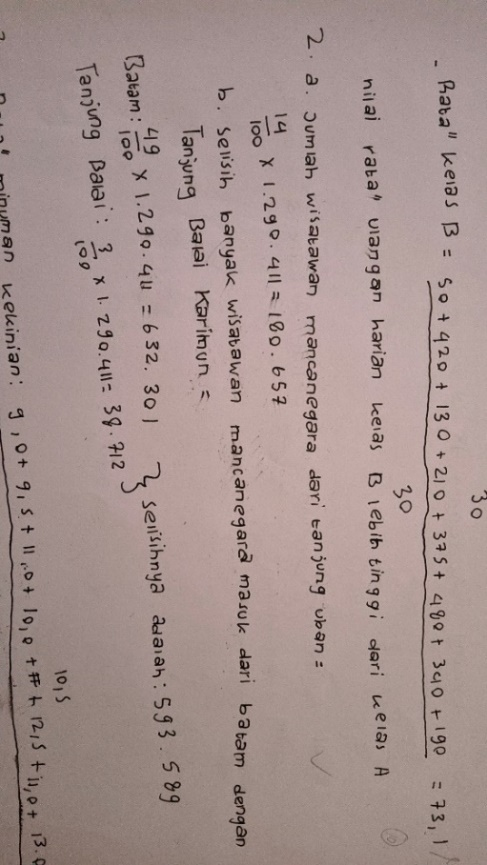 30
- Rata" kelas B = 50 + 420 + 130 + 210 + 375 + 480 + 340 + 190 = 73,1
30
nilai rata" ulangan harian kelas B lebih tinggi dari kelas A
2. a. Jumlah wisatawan mancanegara dari tanjung uban =
14/100 x 1.290.411 = 180.657
b. selisih banyak wisatawan mancanegara masuk dari batam dengan
Tanjung Balai Karimun =
Batam : 49/100 x 1.290.411 = 632.301 } selisihnya adalah : 593.589
Tanjung Balai : 3/100 x 1.290.411 = 38.712
10,5
minuman kekinian : 9,0 + 9,5 + 11,0 + 10,0 + + 12,5 + 11,0 + 13.0